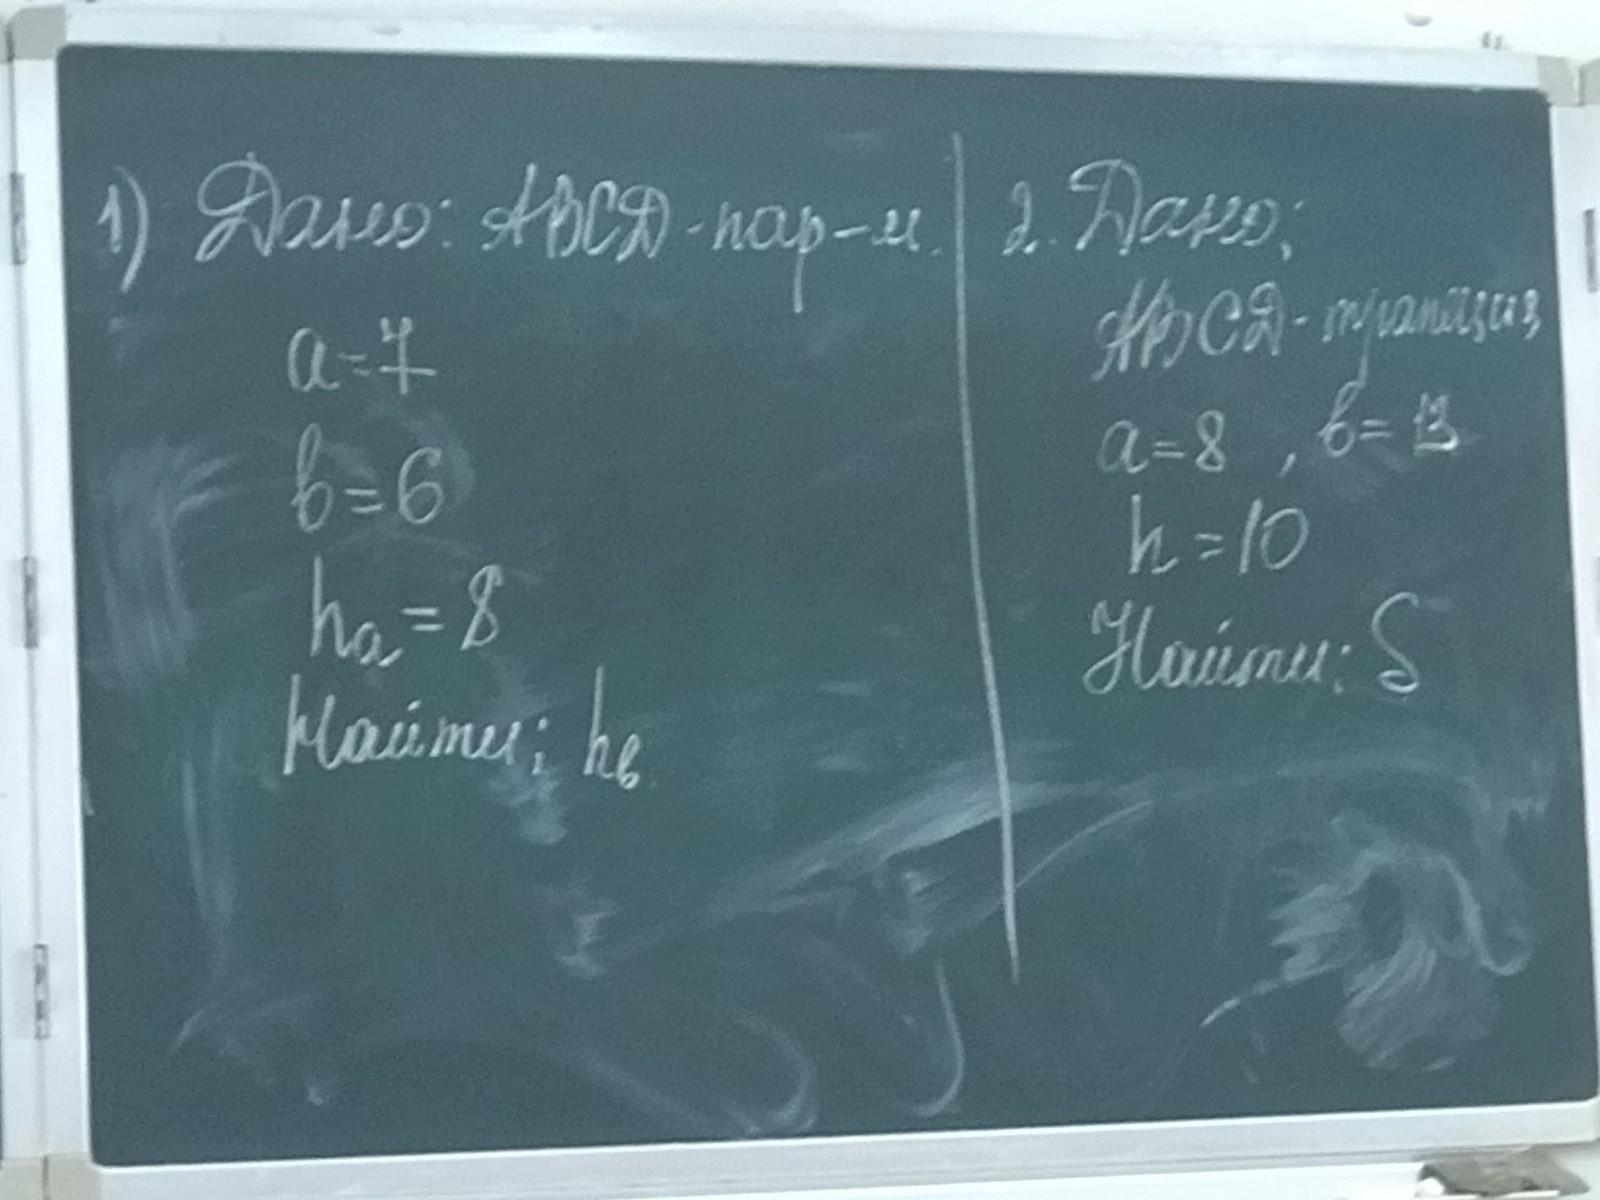 1) Дано: ABCD-пар-м.
a=7
b=6
ha=8
Найти: hb
2. Дано:
ABCD-трапеция,
a=8, b=13
h=10
Найти: S